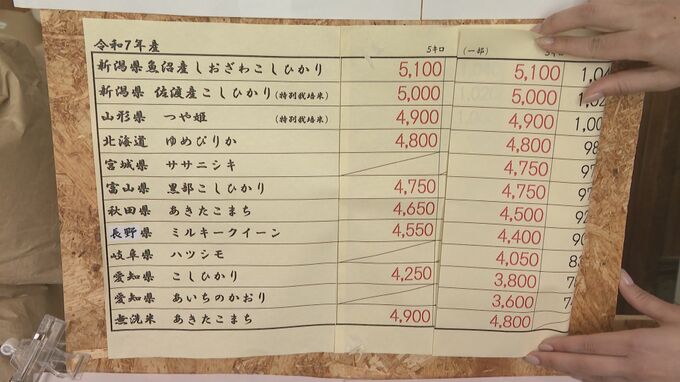 令和7年産 5キロ (一部) 5キロ
新潟県魚沼産しおざわこしひかり 5,100 5,100 1,04
新潟県 佐渡産こしひかり(特別栽培米) 5,000 5,000 1,02
山形県 つや姫 (特別栽培米) 4,900 4,900 1,00
北海道 ゆめぴりか 4,800 4,800 98
宮城県 ササニシキ 4,750 97
富山県 黒部こしひかり 4,750 4,750 97
秋田県 あきたこまち 4,650 4,500 92
長野県 ミルキークイーン 4,550 4,400 90
岐阜県 ハツシモ 4,050 83
愛知県 こしひかり 4,250 3,800
愛知県 あいちのかおり 3,600
無洗米 あきたこまち 4,900 4,800